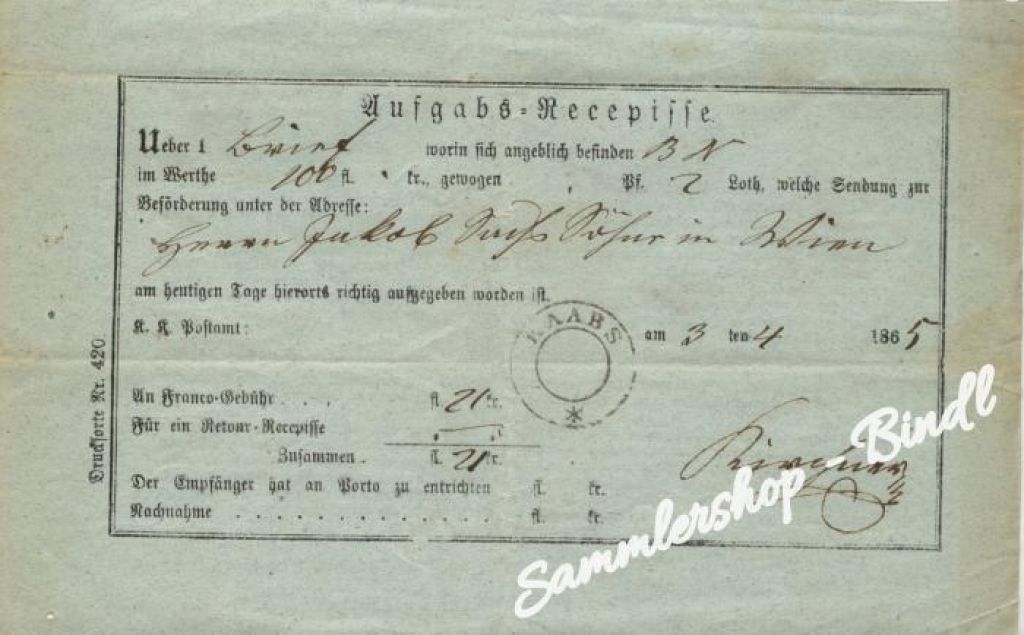 Aufgabs-Recepisse.
Ueber 1 Brief worin sich angeblich befinden B N
im Werthe 100 fl. kr., gewogen Pf. 2 Loth, welche Sendung zur
Beförderung unter der Adresse:
Herrn Jakob Söhne in Wien
am heutigen Tage hierorts richtig aufgegeben worden ist.
K. K. Postamt: RAABS am 3 ten 4 1865
An Franco-Gebühr . . . fl. 21 kr.
Für ein Retour-Recepisse
Zusammen fl. 21 kr.
Kirchner
Der Empfänger hat an Porto zu entrichten fl. kr.
Nachnahme . . . . . . . . . . . . . fl. kr.
Drucksorte Nr. 420.
Sammlershop - Bindl